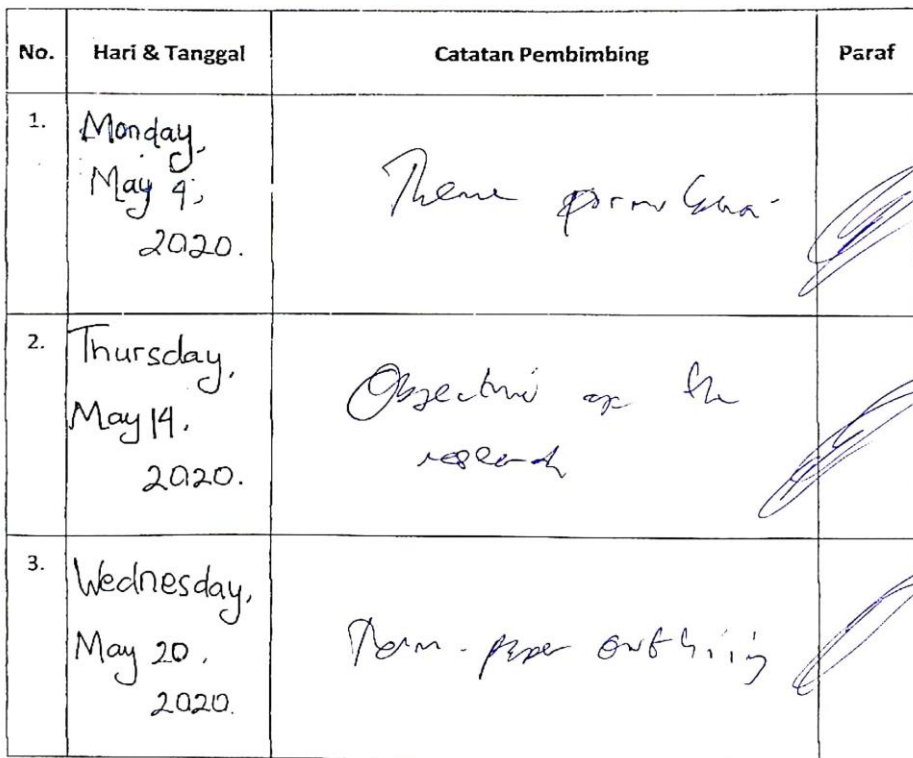 No. Hari & Tanggal Catatan Pembimbing Paraf
1. Monday,
May 4,
2020.
Theme
2. Thursday,
May 14,
2020.
Objective of the
research
3. Wednesday,
May 20,
2020.
Term-paper outlining